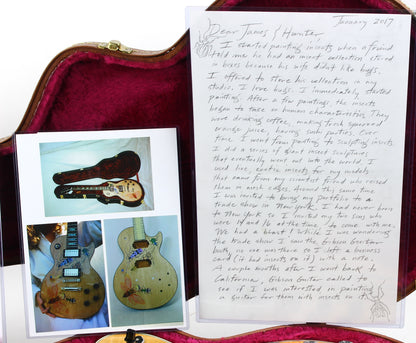 January 2017
Dear James & Hunter,
I started painting insects when a friend
told me he had an insect collection stored
in boxes because his wife didn't like bugs.
I offered to store his collection in my
studio. I love bugs. I immediately started
painting. After a few paintings the insects
began to take on human characteristics. They
were drinking coffee, making fresh squeezed
orange juice, having sock parties. Over
time I went from painting to sculpting insects.
I did a series of giant insect sculptures
that eventually went out into the world. I
used live, exotic insects for my models
that came from my scientist friend who raised
them in mesh cages. Around this same time
I was invited to bring my portfolio to a
trade show in New York. I had never been
to New York so I invited my two sons who
were 14 and 16 at the time, to come with me.
We had a blast! While I was wandering
the trade show I saw the Gibson Guitar
booth, no one was there so I left a business
card (it had insects on it) with a note.
A couple months after I went back to
California, Gibson Guitar called to
see if I was interested in painting
a guitar for them with insects on it.